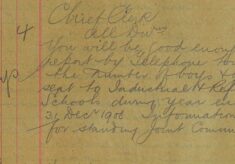 4
Chief Clerk
All Divns
You will be good enough
report by Telephone to
the number of boys &
sent to Industrial & Ref
Schools during year en
31 Decr 1908 Information
for Standing Joint Comm